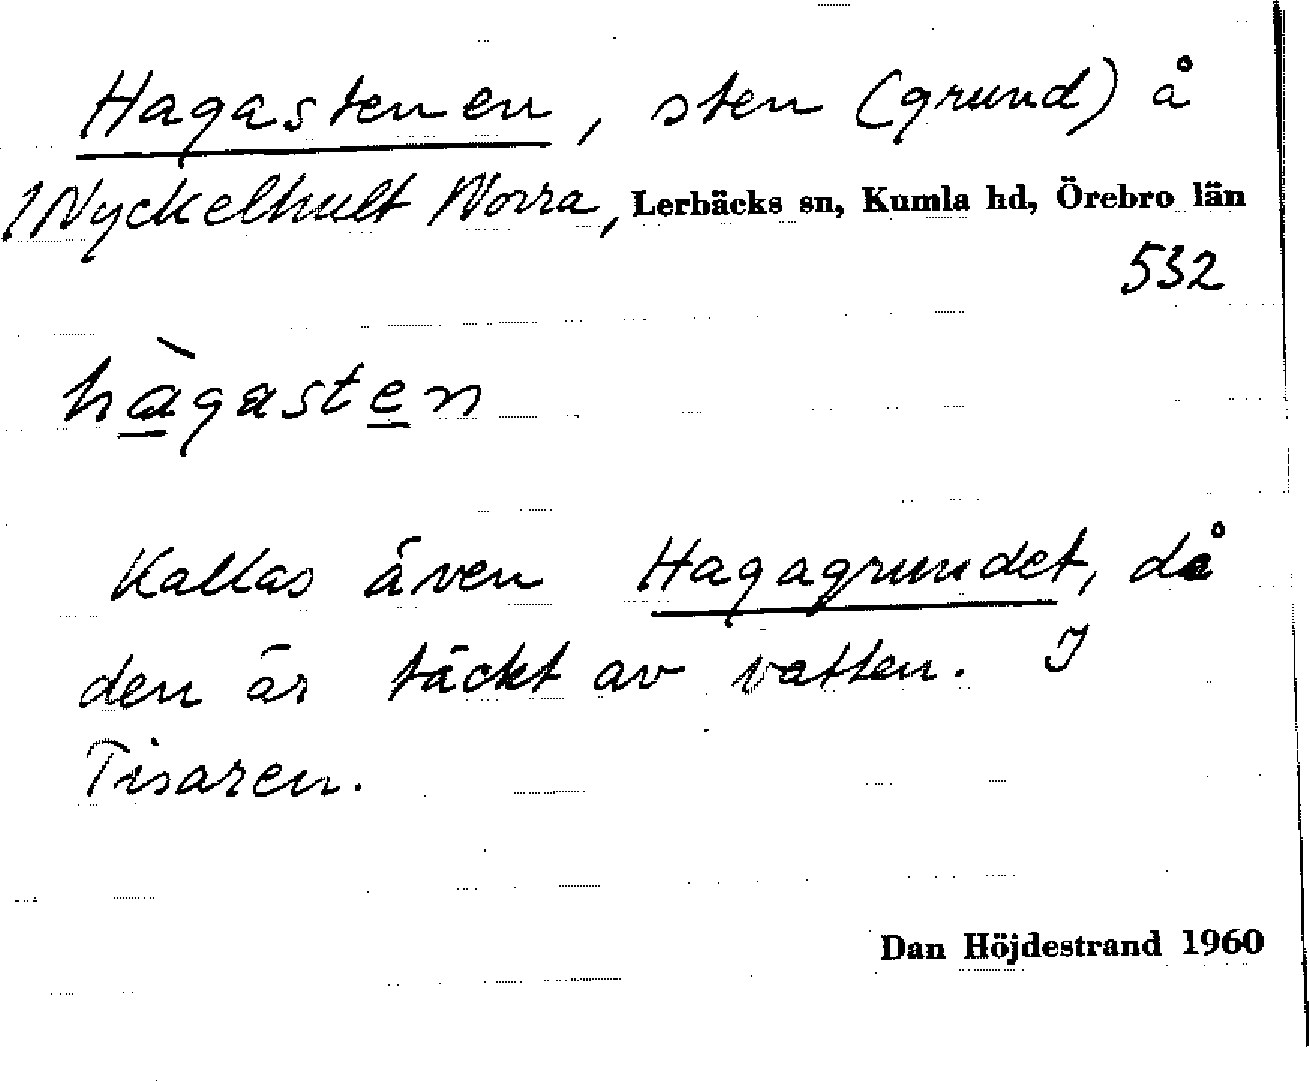 Hagastenen, sten (grund) å
1 Nyckelhult Norra, Lerbäcks sn, Kumla hd, Örebro län
532
hàgasten
Kallas även Hagagrundet, då
den är täckt av vatten. I
Tisaren.
Dan Höjdestrand 1960